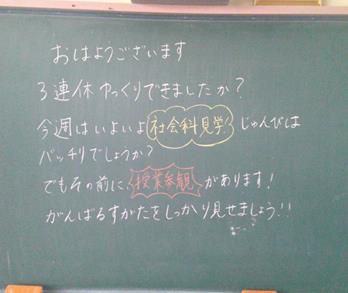 おはようございます
3連休ゆっくりできましたか?
今週はいよいよ社会科見学!じゅんびは
バッチリでしょうか?
でもその前に授業参観があります!
がんばるすがたをしっかり見せましょう!!